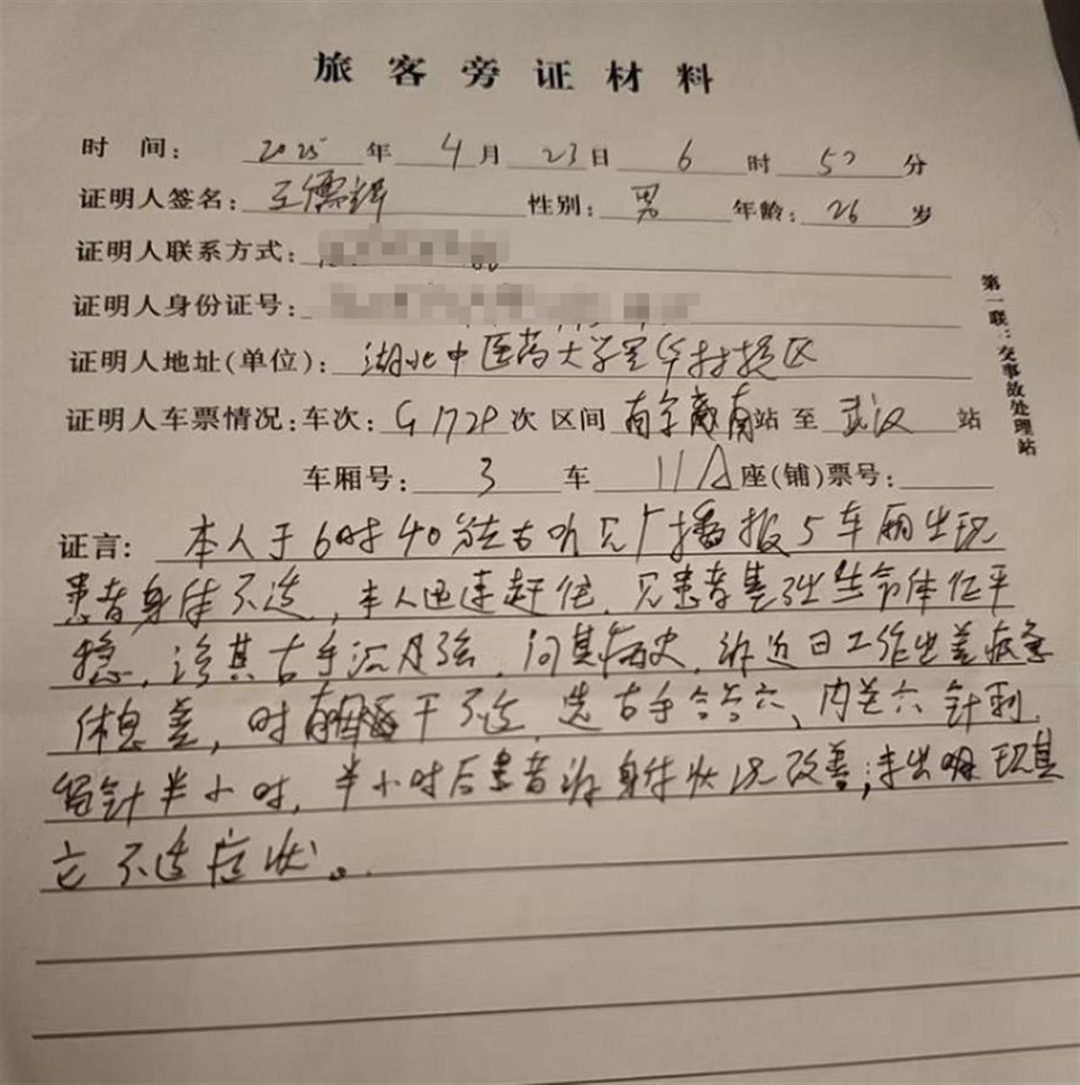 旅客旁证材料
时 间: 2025 年 4 月 23 日 6 时 50 分
证明人签名: 王儒辉 性别: 男 年龄: 26 岁
证明人联系方式:
证明人身份证号:
证明人地址(单位): 湖北中医药大学黄家湖校区
证明人车票情况: 车次: G1728 次 区间 南 站 至 武汉 站
车厢号: 3 车 11A 座(铺)票号:
证言: 本人于6时40分左右听见广播报5车厢出现
患者身体不适, 本人迅速赶往. 见患者基础生命体征平
稳, 诊其右手沉 弦. 问其病史, 诉近日工作出差疲惫
休息差, 时 干不适, 选右手合谷穴、内关穴针刺,
留针半小时, 半小时后患者诉身体状况改善; 未出 现其
它不适症状。
第一联:交事故处理站